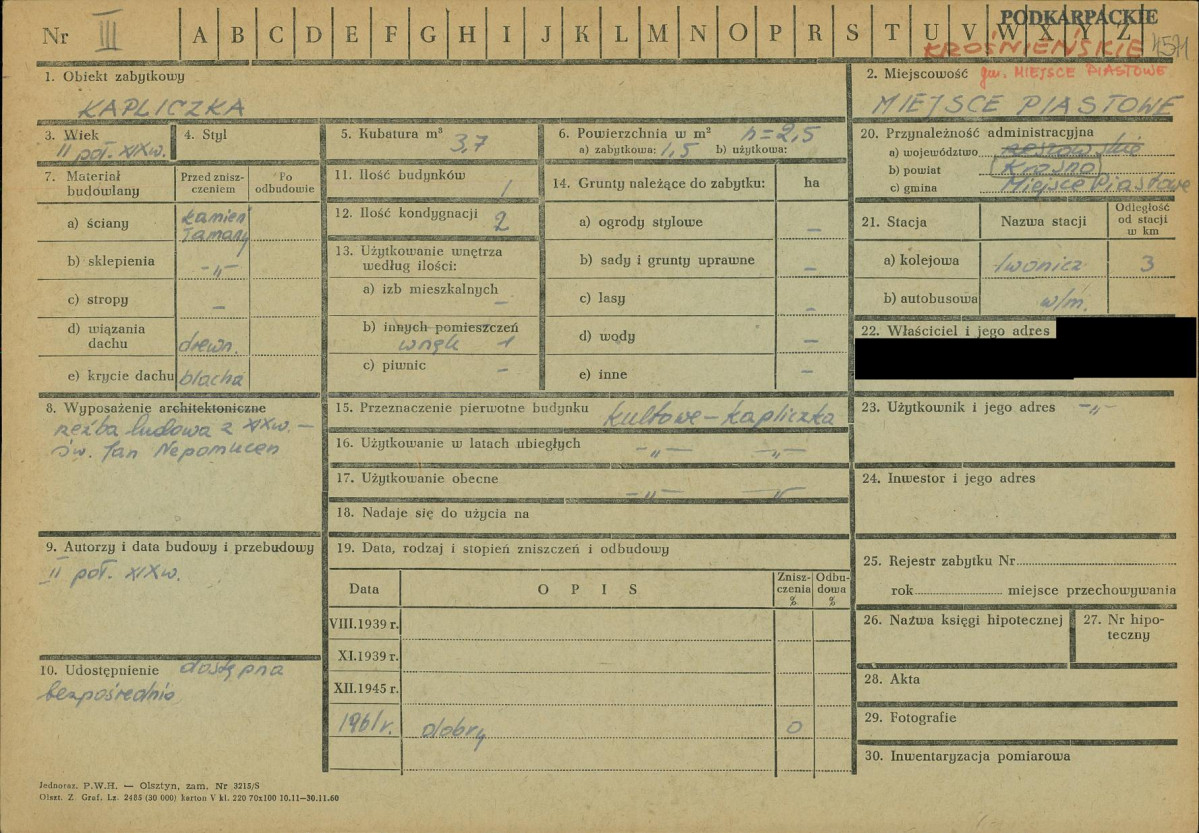 Nr III A B C D E F G H I J K L M N O P R S T U V W X Y Z
PODKARPACKIE
KROŚNIEŃSKIE
gm. MIEJSCE PIASTOWE
1. Obiekt zabytkowy
KAPLICZKA
2. Miejscowość
MIEJSCE PIASTOWE
3. Wiek
II poł. XIXw.
4. Styl
5. Kubatura m³ 3,7
6. Powierzchnia w m² h=2,5
a) zabytkowa: 1,5 b) użytkowa:
7. Materiał budowlany
Przed zniszczeniem
Po odbudowie
a) ściany kamień łamany
b) sklepienia -„-
c) stropy –
d) wiązania dachu drewn.
e) krycie dachu blacha
8. Wyposażenie architektoniczne
rzeźba ludowa z XIXw. –
św. Jan Nepomucen
9. Autorzy i data budowy i przebudowy
II poł. XIXw.
10. Udostępnienie dostępna
bezpośrednio
11. Ilość budynków 1
12. Ilość kondygnacji 2
13. Użytkowanie wnętrza
według ilości:
a) izb mieszkalnych –
b) innych pomieszczeń
wnęk 1
c) piwnic –
14. Grunty należące do zabytku: ha
a) ogrody stylowe –
b) sady i grunty uprawne –
c) lasy –
d) wody –
e) inne –
15. Przeznaczenie pierwotne budynku kultowe – kapliczka
16. Użytkowanie w latach ubiegłych -„- -„-
17. Użytkowanie obecne -„- -„-
18. Nadaje się do użycia na
19. Data, rodzaj i stopień zniszczeń i odbudowy
Data OPIS Zniszczenia % Odbudowa %
VIII.1939 r.
XI.1939 r.
XII.1945 r.
1961r. dobry 0
20. Przynależność administracyjna
a) województwo rzeszowskie
b) powiat Krosno
c) gmina Miejsce Piastowe
21. Stacja Nazwa stacji Odległość od stacji w km
a) kolejowa Iwonicz 3
b) autobusowa w/m.
22. Właściciel i jego adres
23. Użytkownik i jego adres -„-
24. Inwestor i jego adres
25. Rejestr zabytku Nr
rok miejsce przechowywania
26. Nazwa księgi hipotecznej
27. Nr hipoteczny
28. Akta
29. Fotografie
30. Inwentaryzacja pomiarowa
Jednoraz. P.W.H. — Olsztyn, zam. Nr 3215/S
Olszt. Z. Graf. Lz. 2485 (30 000) karton V kl. 220 70x100 10.11—30.11.60